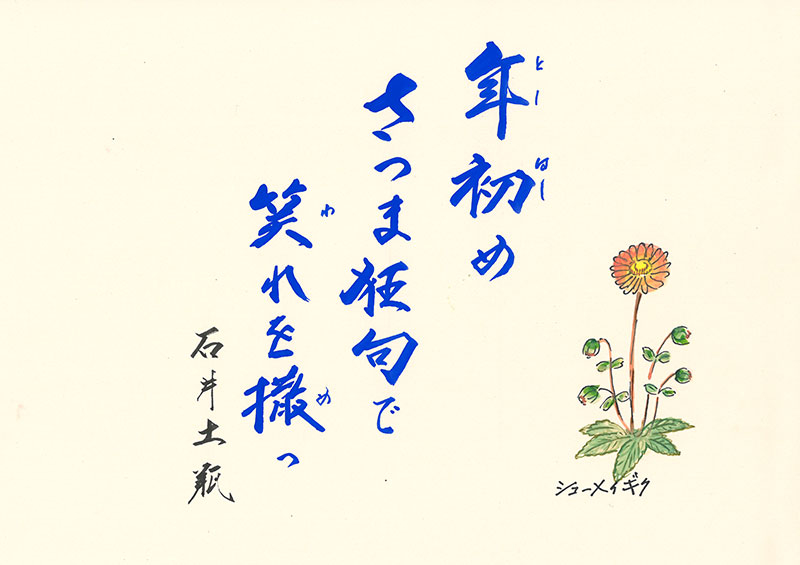 年初め
とし
はし
さつま狂句で
笑れを撒っ
わ
め
石井土瓶
シューメイギク